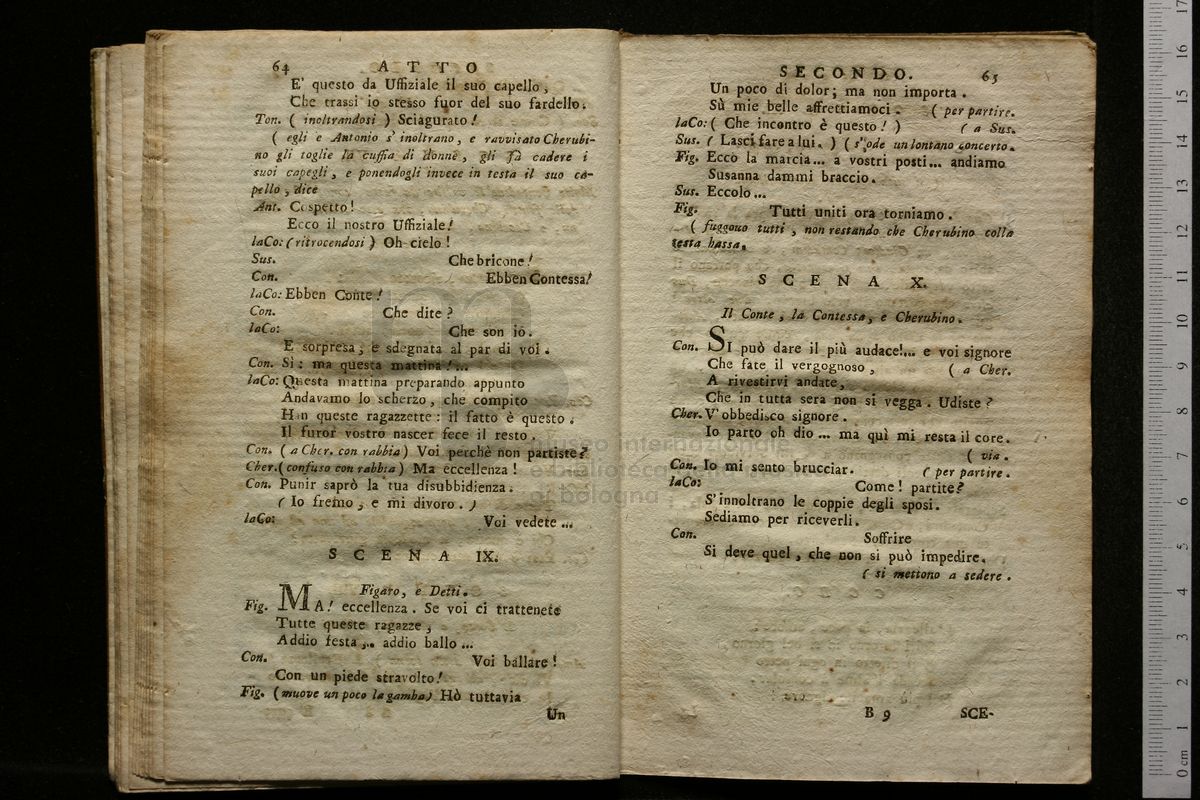 64 ATTO
E' questo da Uffiziale il suo capello,
Che trassi io stesso fuor del suo fardello.
Ton. ( inoltrandosi ) Sciagurato!
( egli e Antonio s' inoltrano, e ravvisato Cherubi-
no gli toglie la cuffia di donne, gli fà cadere i
suoi capegli, e ponendogli invece in testa il suo ca-
pello, dice
Ant. Cospetto!
Ecco il nostro Uffiziale!
laCo: (ritrocendosi ) Oh cielo!
Sus. Che bricone!
Con. Ebben Contessa!
laCo: Ebben Conte!
Con. Che dite?
laCo: Che son io.
E sorpresa, e sdegnata al par di voi.
Con. Sì: ma questa mattina!...
laCo: Questa mattina preparando appunto
Andavamo lo scherzo, che compito
Han queste ragazzette: il fatto è questo.
Il furor vostro nascer fece il resto.
Con. ( a Cher. con rabbia ) Voi perchè non partiste?
Cher. (confuso con rabbia ) Ma eccellenza!
Con. Punir saprò la tua disubbidienza.
( Io fremo, e mi divoro. )
laCo: Voi vedete ...
SCENA IX.
Figaro, e Detti.
Fig. MA! eccellenza. Se voi ci trattenete
Tutte queste ragazze,
Addio festa ... addio ballo ...
Con. Voi ballare!
Con un piede stravolto!
Fig. (muove un poco la gamba) Hò tuttavia
Un
SECONDO. 65
Un poco di dolor; ma non importa.
Sù mie belle affrettiamoci. ( per partire.
laCo: ( Che incontro è questo! ) ( a Sus.
Sus. ( Lasci fare a lui. ) ( s' ode un lontano concerto.
Fig. Ecco la marcia... a vostri posti... andiamo
Susanna dammi braccio.
Sus. Eccolo...
Fig. Tutti uniti ora torniamo.
( fuggouo tutti, non restando che Cherubino colla
testa bassa.
SCENA X.
Il Conte, la Contessa, e Cherubino.
Con. SI può dare il più audace!... e voi signore
Che fate il vergognoso, ( a Cher.
A rivestirvi andate,
Che in tutta sera non si vegga. Udiste?
Cher. V' obbedisco signore.
Io parto oh dio ... ma quì mi resta il core.
( via.
Con. Io mi sento brucciar. ( per partire.
laCo: Come! partite?
S' innoltrano le coppie degli sposi.
Sediamo per riceverli.
Con. Soffrire
Si deve quel, che non si può impedire.
( si mettono a sedere.
B 9 SCE-
museo internazionale
e biblioteca
di bologna
0 cm 1 2 3 4 5 6 7 8 9 10 11 12 13 14 15 16 17